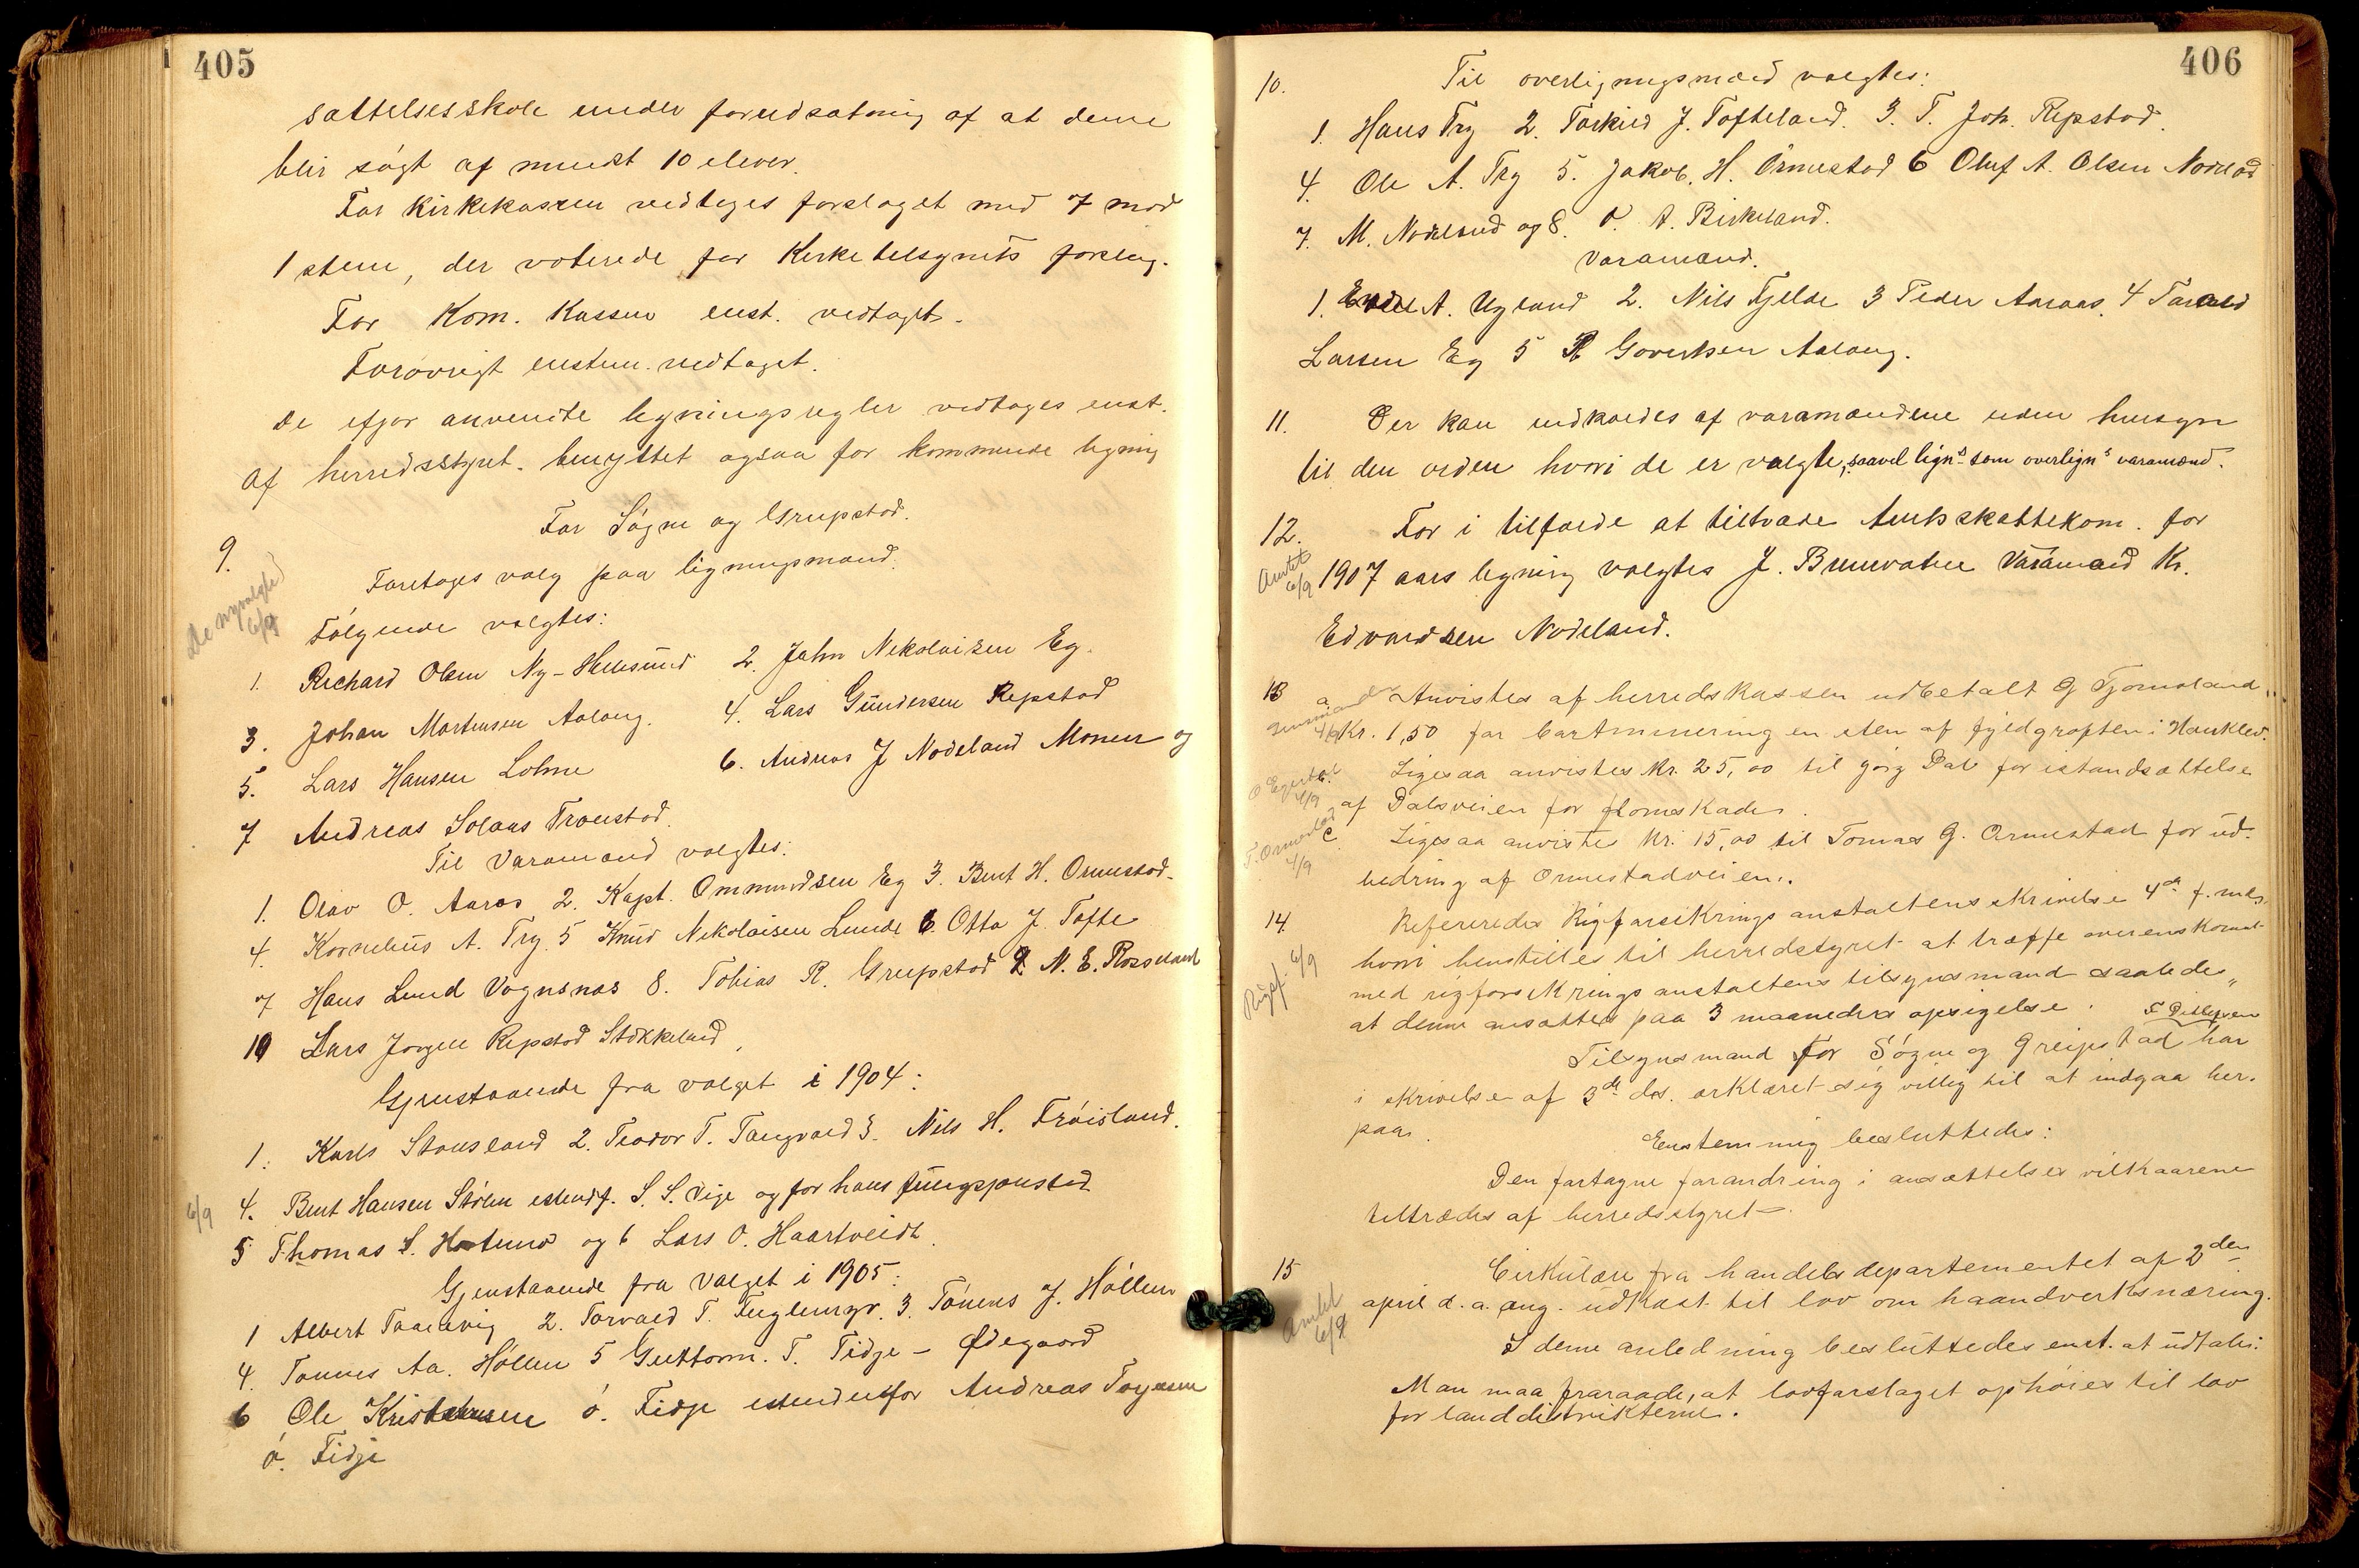 405
sættelsesskole under forudsætning af at denne
blir søgt af mindst 10 elever.
For kirkekassen vedtoges forslaget med 7 mod
1 stem, der voterede for Kirketilsynets forslag.
For Kom. Kassen enst. vedtaget.
Forøvrigt enstem. vedtaget.
De ifjor anvendte ligningsregler vedtoges enst.
af herredsstyret benyttet ogsaa for kommende ligning
For Søgne og Greipstad.
9.
de nyvalgte
6/9
Foretoges valg paa ligningsmænd.
Følgende valgtes:
1. Richard Olsen Ny-Hellesund 2. John Nikolaisen Eg.
3. Johan Martensen Aalaug. 4. Lars Gundersen Repstad
5. Lars Hansen Lohne 6. Andreas J Nodeland Monen og
7 Andreas Solaas Tronstad.
Til Varamænd valgtes:
1. Olav O. Aaros 2. Kapt. Ommundsen Eg 3. Bent H. Ormestad.
4. Kornelius A. Try. 5 Knud Nikolaisen Lunde 6. Otto J. Tofte
7 Hans Lund Vognsnes 8. Tobias R. Greipstad 9. N. E. Rosseland
10 Lars Jørgen Repstad Stokkeland
Gjenstaaende fra valget i 1904:
1. Karls Stousland 2. Teodor T. Tangvald 3. Nils H. Frøisland.
6/9
4. Bent Hansen Stølen istedf. S. S. Vige og for hans fungsjonstid
5 Thomas S. og 6 Lars O. Haartveidt.
Gjenstaaende fra valget i 1905:
1 Albert Taanevig 2. Torvald T. Fuglemyr. 3. Tønnes J. Høllen
4. Tønnes Aa. Høllen 5 Guttorm. T. Tidje - Ødegaard
6 Ole Kristensen ø. Fidje istedenfor Andreas
ø. Fidje
406
10. Til overligningsmænd valgtes:
1. Hans Try 2. Torkild J. Tofteland. 3. T. Joh. Repstad.
4. Ole A. Try 5. Jakob. H. Ormestad 6 Oluf A. Olsen Nodeland
7. M. Nodeland og 8. O. A. Birkeland.
Varamænd.
1. A. Ugland 2. Nils Fjelde 3 Peder Aaraas. 4 Torvald
Larsen Eg 5 R Govertsen Aalaug.
11. Der kan indkaldes af varamændene uden hensyn
til den orden hvori de er valgte, saavel lign.s som overlign.s varamænd.
12. For i tilfælde at tiltræde Amtsskattekom. for
Amtet
6/9
1907 aars ligning valgtes J. Brunvatne Varamand Kr.
Edvardsen Nodeland.
13 a Anvistes af herredskassen udbetalt G Tjomsland
4/9
Kr. 1,50 for bortminering en sten af fjeldgrøften i Hanklev.
O Egeristøl
4/9
b. Ligesaa anvistes Kr. 25,00 til Jørg Dal for istandsættelse
af Dalsveien for flomskade.
T. Ormestad
4/9
c. Ligesaa anvistes Kr. 15,00 til Tomas G. Ormestad for ud-
bedring af Ormestadveien.
14. Refereredes Rigforsikringsanstaltens skrivelse 4de f. mds.
Rigsf. 6/9
hvori henstilles til herredstyret at træffe overenskomst
med rigforsikringsanstaltens tilsynsmand saaledes,
at denne ansættes paa 3 maaneders opsigelse.
Tilsynsmand for Søgne og Greipstad F Ditlefsen har
i skrivelse af 3de ds. erklæret sig villig til at indgaa her-
paa.
Enstemmig besluttedes:
Den fortagne forandring i ansættelses vilkaarene
tiltrædes af herredsstyret.
15 Cirkulære fra handelsdepartementet af 2den
Amtet
6/9
april d. a. ang. udkast til lov om haandverksnæring.
I denne anledning besluttedes enst. at udtale:
Man maa fraraade, at lovforslaget ophøies til lov
for landdistrikterne.